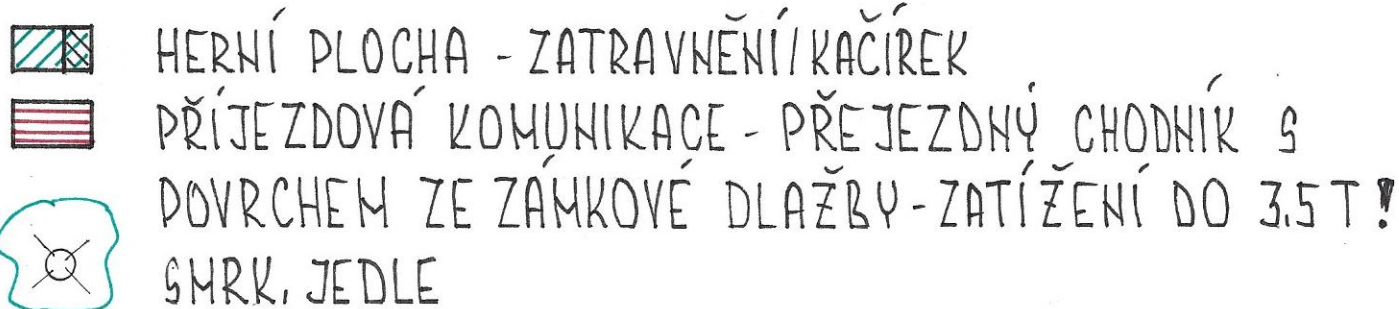 HERNÍ PLOCHA - ZATRAVNĚNÍ/KAČÍREK
PŘÍJEZDOVÁ KOMUNIKACE - PŘEJEZDNÝ CHODNÍK S
POVRCHEM ZE ZÁMKOVÉ DLAŽBY - ZATÍŽENÍ DO 3.5 T!
SMRK, JEDLE